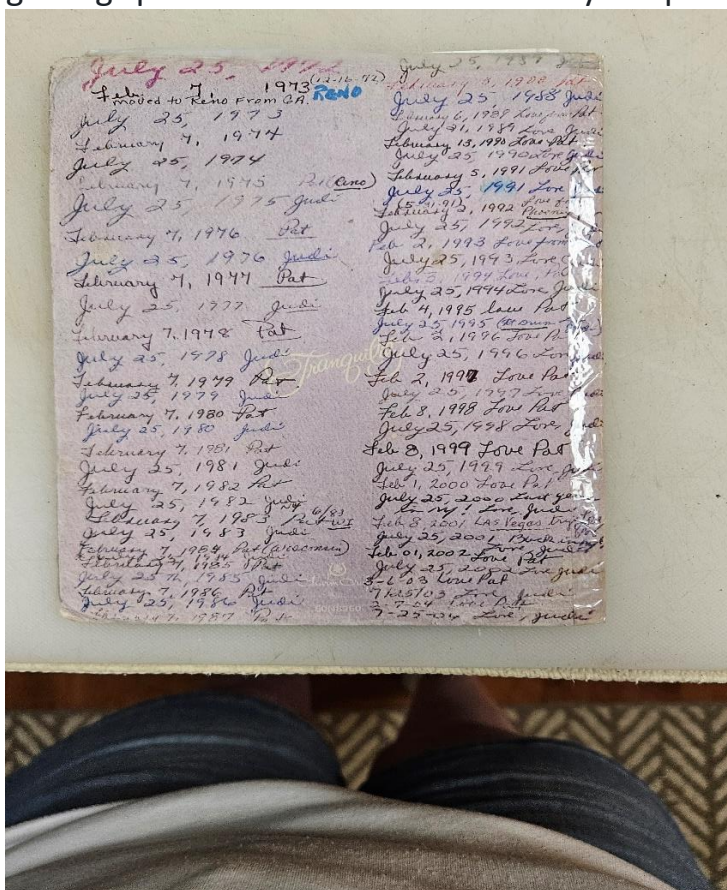 July 25, 1972
Feb. 7, 1973 (12-16-72)
moved to Reno From CA. RENO
July 25, 1973
February 7, 1974
July 25, 1974
February 7, 1975 Pat (Reno)
July 25, 1975 Judi
February 7, 1976 Pat
July 25, 1976 Judi
February 7, 1977 Pat
July 25, 1977 Judi
February 7, 1978 Pat
July 25, 1978 Judi
February 7, 1979 Pat
July 25, 1979 Judi
February 7, 1980 Pat
July 25, 1980 Judi
February 7, 1981 Pat
July 25, 1981 Judi
February 7, 1982 Pat
July 25, 1982 Judi
February 7, 1983 Pat 6/83
July 25, 1983 Judi
February 7, 1984 Pat
February 7, 1985 Pat
July 25, 1985 Judi
February 7, 1986 Pat
July 25, 1986 Judi
February 7, 1987 Pat
Tranquil
July 25, 1987
February 1988 Pat
July 25, 1988 Judi
February 6, 1989 Love Pat
July 21, 1989 Love Judi
February 13, 1990 Love Pat
July 25, 1990 Love Judi
February 5, 1991 Love
July 25, 1991 Love
February 2, 1992 Love
July 25, 1992 Love,
Feb 2, 1993 Love from
July 25, 1993 Love
1994 Love,
July 25, 1994 Love Judi
Feb 4, 1995 love Pat
July 25, 1995
Feb 2, 1996 Love Pat
July 25, 1996 Love
Feb 2, 1997 Love Pat
July 25, 1997 Love
Feb 8, 1998 Love Pat
July 25, 1998 Love,
Feb 8, 1999 Love Pat
July 25, 1999 Love, Judi
Feb 1, 2000 Love Pat
July 25, 2000 Last year
in NY! Love, Judi
Feb 8, 2001 Las Vegas trip
July 25, 2001
Feb 01, 2002 Love Pat
July 25, 2002 Love Judi
3-6-03 Love Pat
7/25/03 Love, Judi
2-7-04 Love Pat
7-25-04 Love, Judi